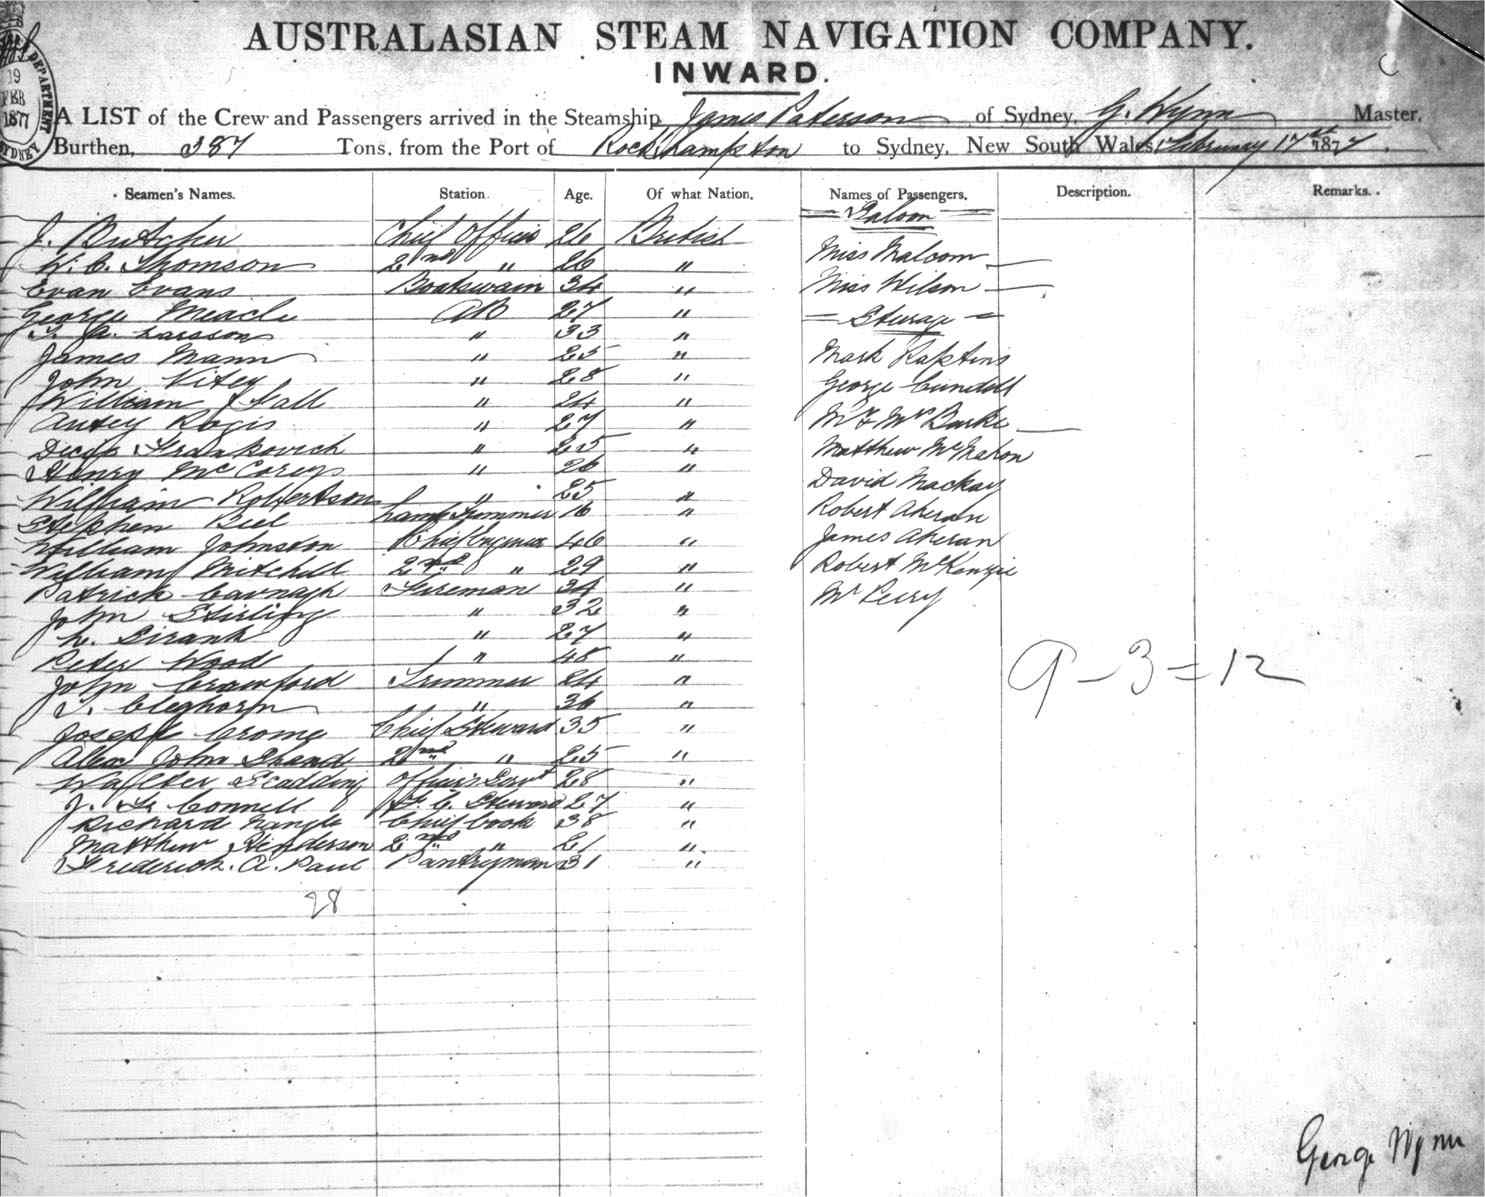 AUSTRALASIAN STEAM NAVIGATION COMPANY.
INWARD.
DEPARTMENT
19
FEB
1877
SYDNEY
A LIST of the Crew and Passengers arrived in the Steamship James Paterson of Sydney, G. Wynn Master,
Burthen, 387 Tons, from the Port of Rockhampton to Sydney, New South Wales, February 17th 1877.
Seamen's Names. Station. Age. Of what Nation. Names of Passengers. Description. Remarks.
= Saloon =
J. Butcher Chief Officer 26 British
W. C. Thomson 2nd " 26 " Miss Malcom
Evan Evans Boatswain 34 " Miss Wilson
George Meacle AB 27 " = Steerage =
Larsson " 33 "
James Mann " 25 " Mark Rapkins
John Vitey " 28 " George Cundell
William Hall " 24 "
Regis " 27 " Mr & Mrs Burke
Frankovich " 25 " Matthew McMahon
Henry " 26 "
William Robertson " 25 " David Mackay
Stephen Biel Lamp Trimmer 16 " Robert Aheran
William Johnston Chief Engineer 46 " James Aheran
William Mitchell 2nd " 29 " Robert McKenzie
Patrick Cavnagh Fireman 34 " Mr Perry
John Stirling " 32 "
" 27 "
Peter Wood " 48 "
John Crawford Trimmer 24 " 9-3=12
Cleghorn " 36 "
Joseph Crome Chief Steward 35 "
Alex John Shand 2nd " 25 "
Walter Scadding Officers Servt 28 "
J. Connell F. C. Steward 27 "
Richard Nangle Chief Cook 38 "
Matthew Henderson 2nd " 21 "
Frederick. A. Paul Pantryman 31 "
28
George Wynn